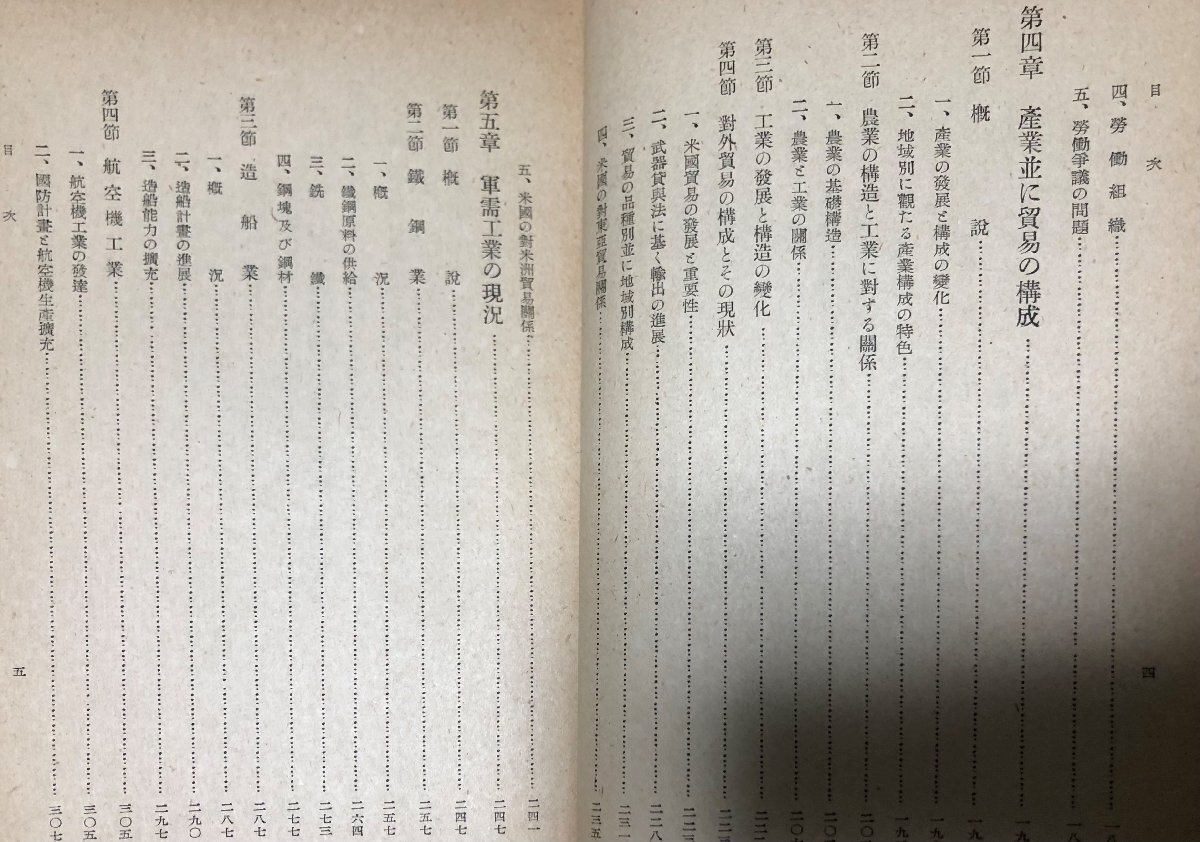 目次
四、勞働組織
五、勞働爭議の問題
第四章 產業並に貿易の構成
第一節 概說
一、產業の發展と構成の變化
二、地域別に觀たる產業構成の特色
第二節 農業の構造と工業に對する關係
一、農業の基礎構造
二、農業と工業の關係
第三節 工業の發展と構造の變化
第四節 對外貿易の構成とその現狀
一、米國貿易の發展と重要性
二、武器貸與法に基く輸出の進展
三、貿易の品種別並に地域別構成……二三一
四、米國の對東亞貿易關係……二三五
四
五、米國の對米洲貿易關係……二四一
第五章 軍需工業の現況……二四七
第一節 概說……二四七
第二節 鐵鋼業……二五七
一、概況……二五七
二、鐵鋼原料の供給……二六四
三、銑鐵……二七三
四、鋼塊及び鋼材……二七七
第三節 造船業……二八七
一、概況……二八七
二、造船計畫の進展……二九〇
三、造船能力の擴充……二九七
第四節 航空機工業……三〇五
一、航空機工業の發達……三〇五
二、國防計畫と航空機生產擴充……三〇七
目次
五